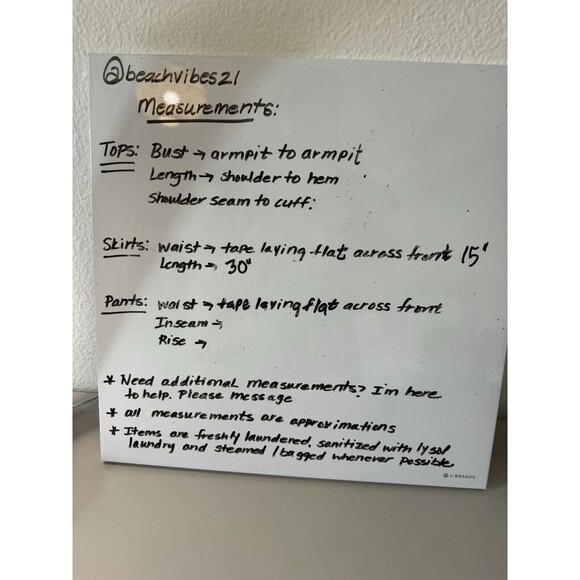 @beachvibes21
Measurements:
Tops: Bust → armpit to armpit
Length → shoulder to hem
Shoulder seam to cuff:
Skirts: Waist → tape laying flat across front 15"
Length → 30"
Pants: Waist → tape laying flat across front
Inseam →
Rise →
* Need additional measurements? I'm here
to help. Please message
* all measurements are approximations
* Items are freshly laundered, sanitized with lysol
laundry and steamed / bagged whenever possible
U BRANDS